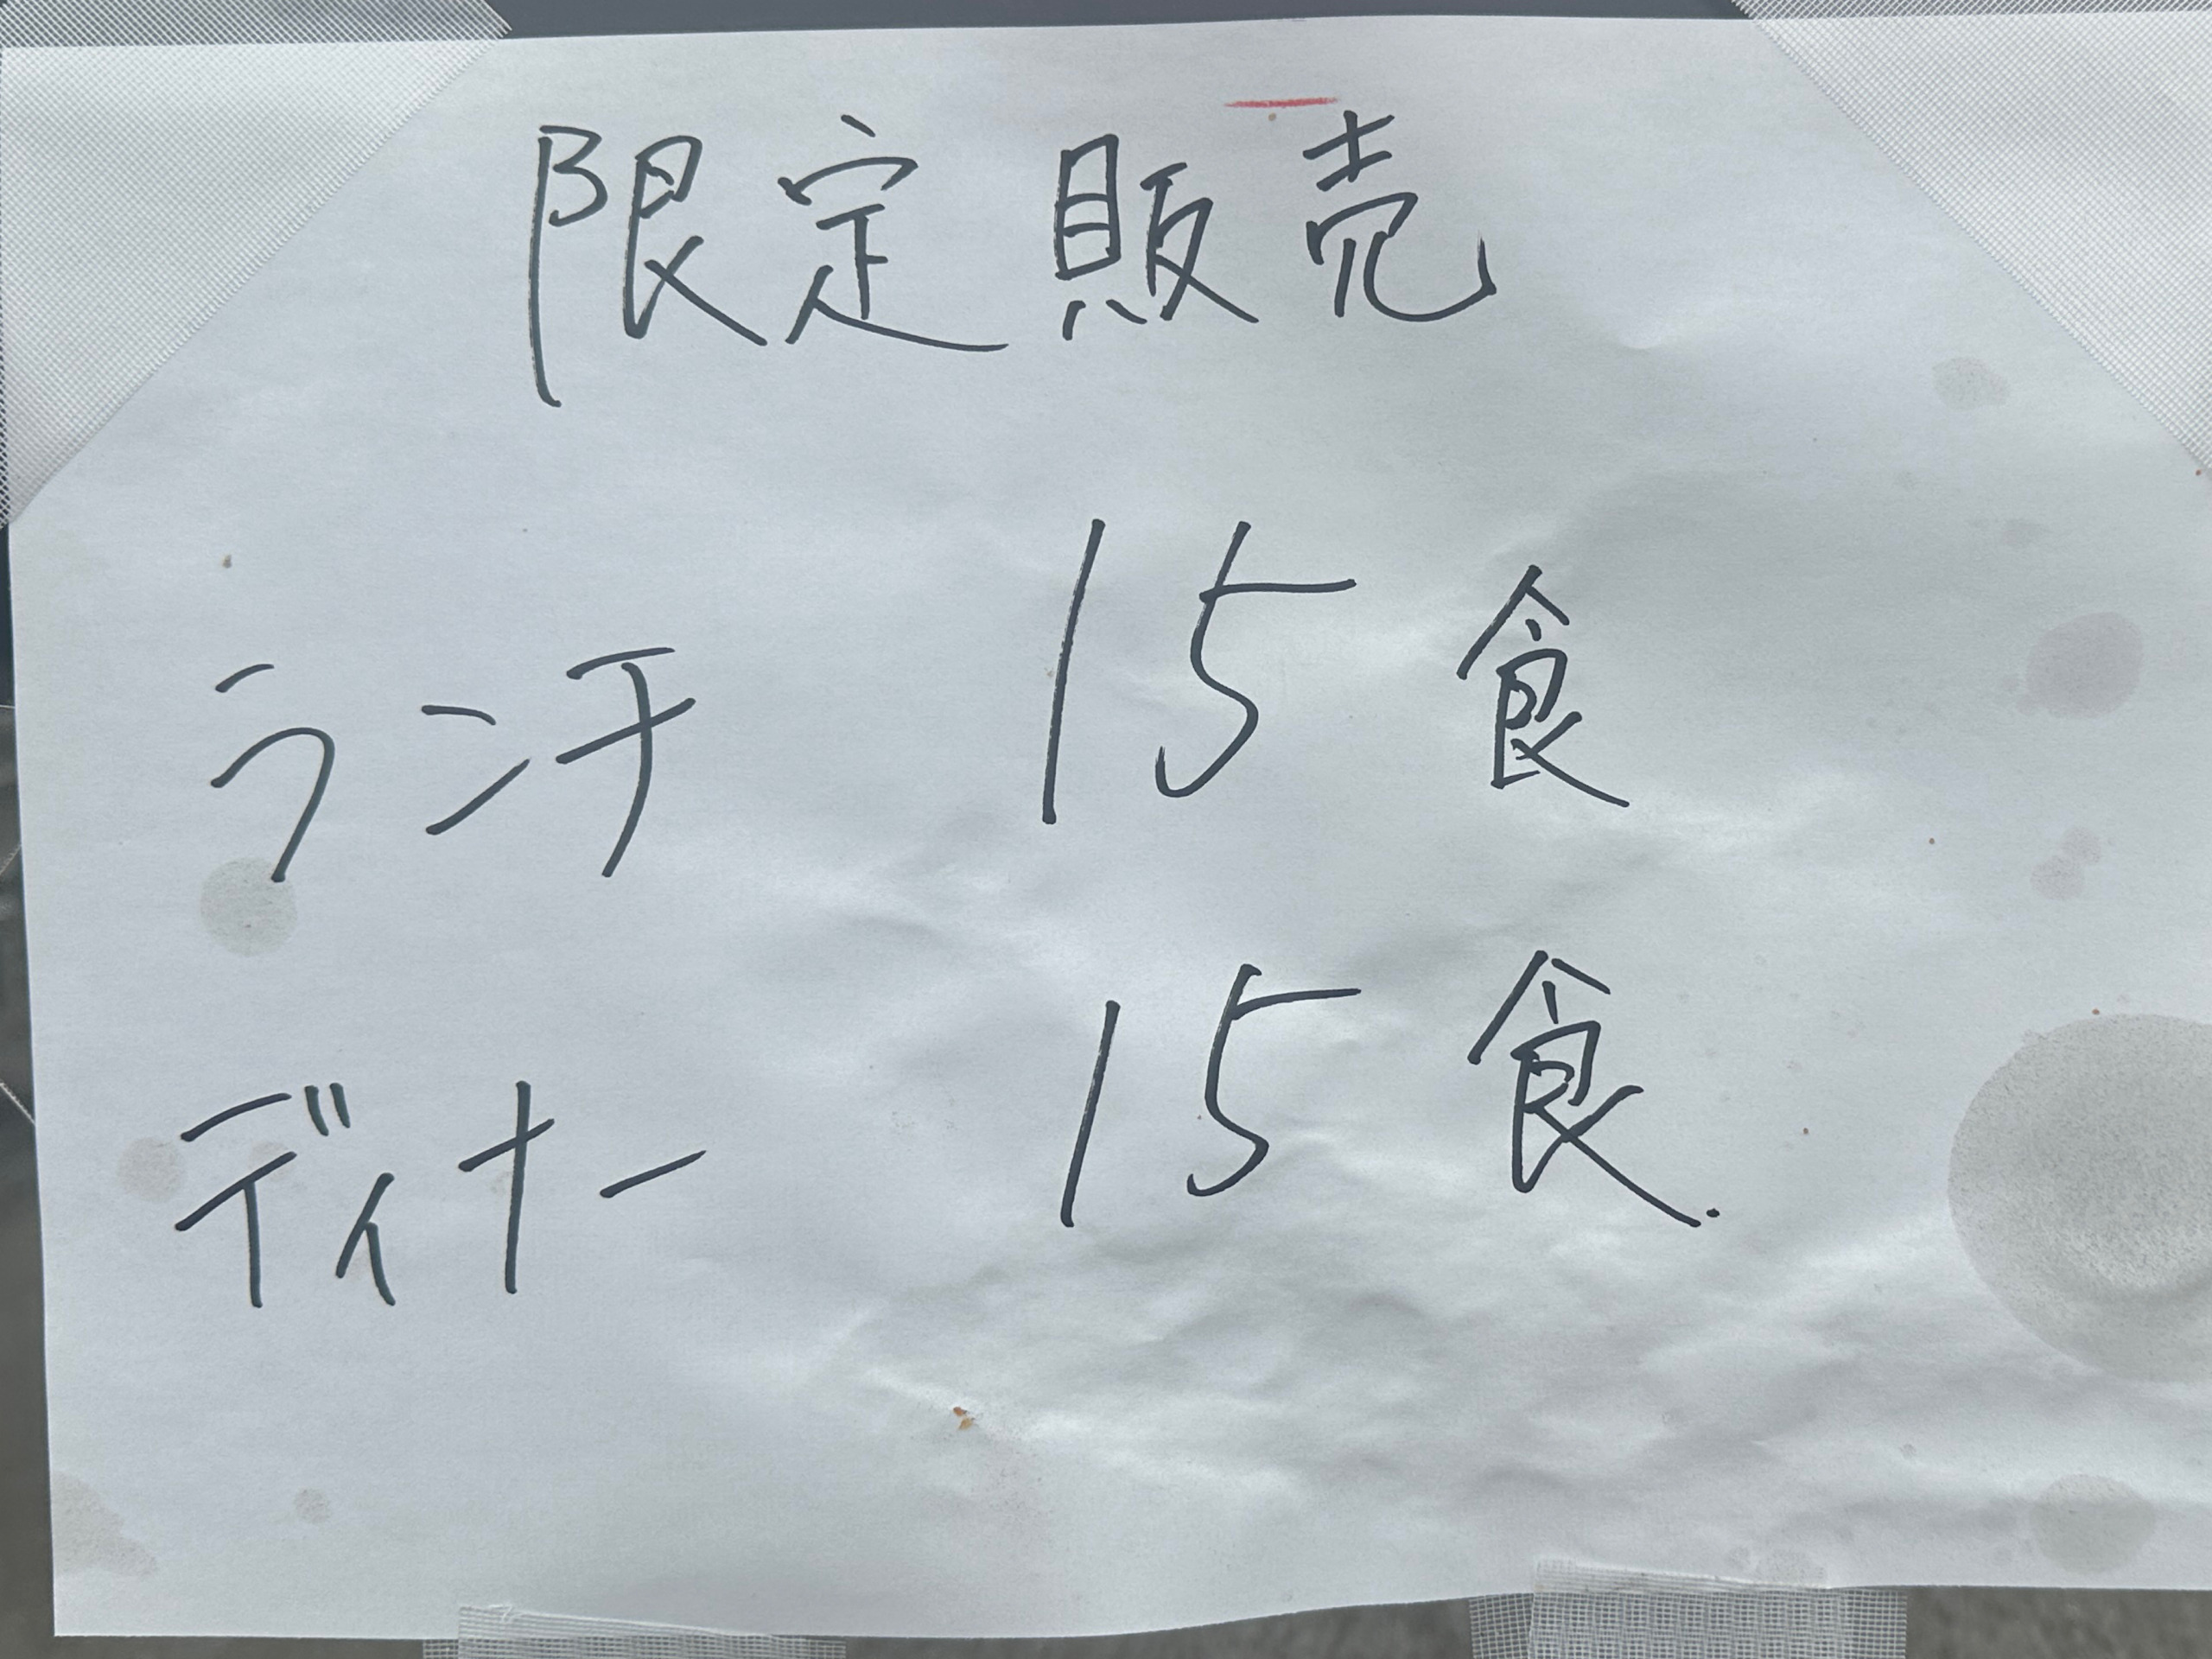 限定販売
ランチ 15食
ディナー 15食.